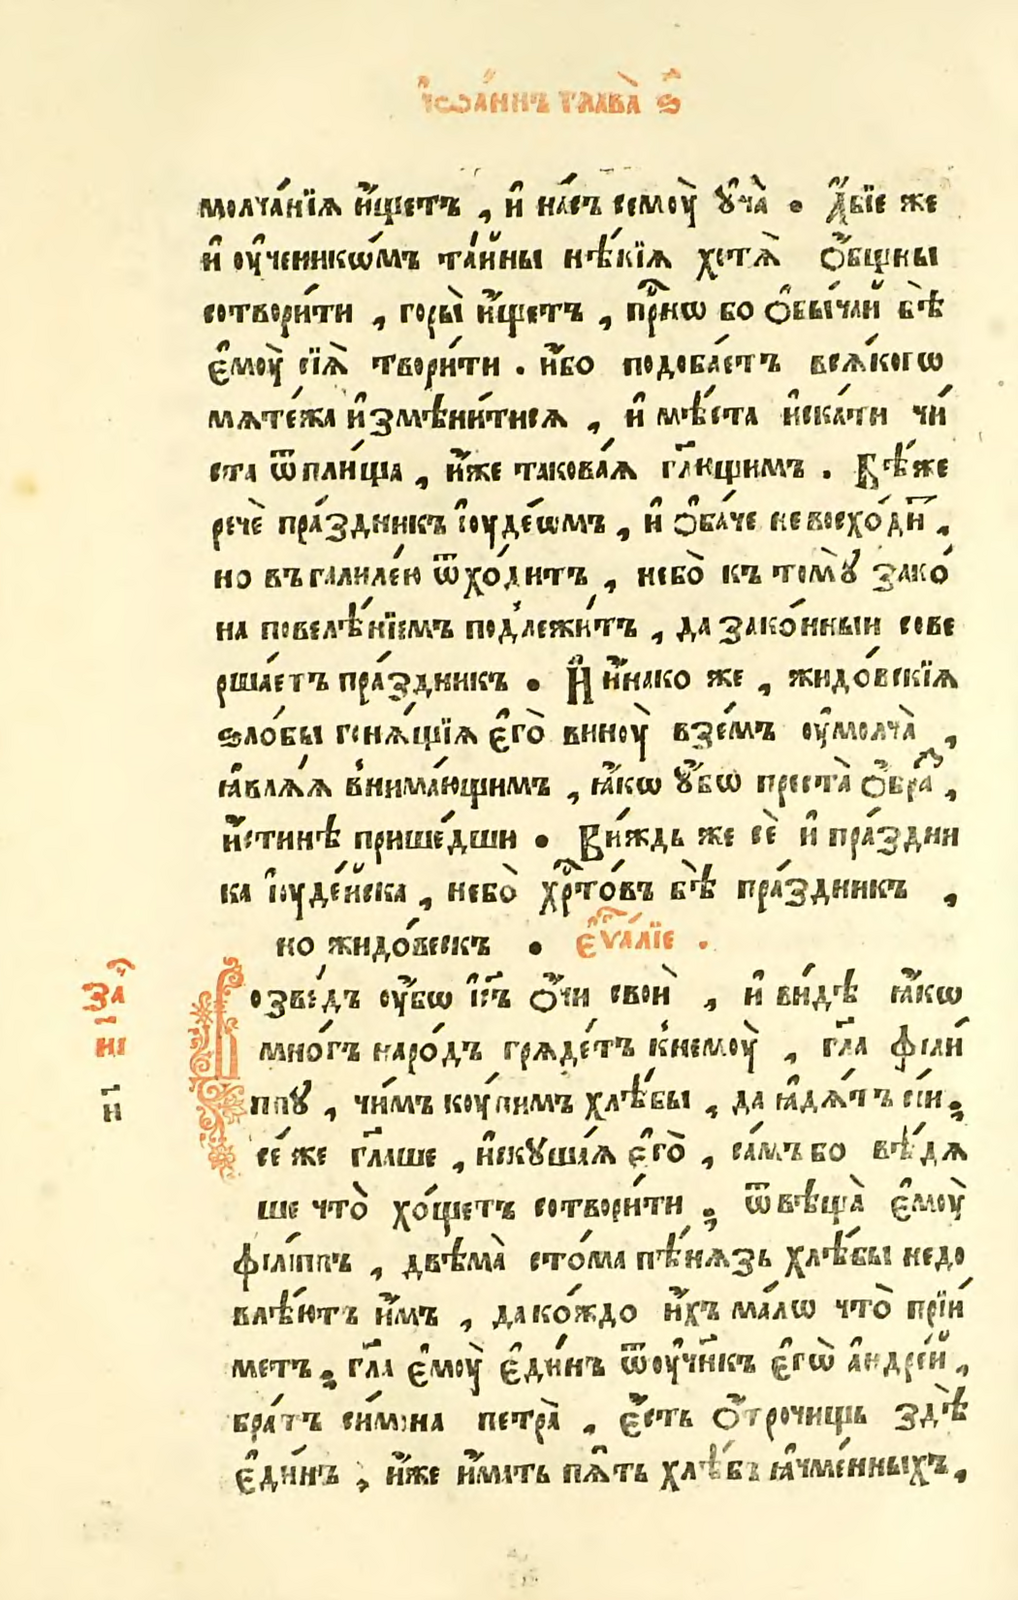 І҆ѡа́ннъ глава̀ ѕ҃
молча́нїѧ и҆́щетъ , и҆ на́съ семоу̀ ᲂу҆ча̀ . А҆́бїе же
и҆ ᲂу҆ченикѡ́мъ та́йны нѣ́кїѧ хотѧ̀ ѻ҆́бщны
сотвори́ти , горы̀ и҆́щетъ , при́снѡ бо ѻ҆бы́чай бѣ̀
є҆моу̀ сїѧ̀ твори́ти . и҆́бо подоба́етъ всѧ́когѡ
мѧте́жа и҆змѣни́тисѧ , и҆ мѣ́ста и҆ска́ти чи́
ста ѿ пли́ща , и҆́же такова́ѧ гл҃ющимъ . Бѣ́же
речѐ пра́здникъ і҆ꙋде́ѡмъ , и҆ ѻ҆ба́че не восхо́ди ,
но въ галиле́ю ѿхо́дитъ , небо̀ къ томꙋ̀ зако́
на повелѣ́нїемъ подлежи́тъ , да зако́нныи сове
рша́етъ пра́здникъ . И҆ и҆́нако же , жидо́вскїѧ
ѕло́бы гонѧ́щїѧ є҆го̀ виноу̀ взе́мъ ᲂу҆молча̀ ,
ꙗ҆влѧ́ѧ внима́ющимъ , ꙗ҆́кѡ ᲂу҆́бѡ преста̀ ѻ҆́бра ,
и҆́стинѣ прише́дши . Ви́ждь же сѐ и҆ пра́здни
ка і҆ꙋде́йска , небо̀ хр҃то́въ бѣ̀ пра́здникъ ,
но жидо́вскъ . є҆ѵⷢ҇а́лїе .
за҃
и҃і
и҃
Возве́дъ ᲂу҆́бѡ і҆с҃ъ ѻ҆́чи свои̑ , и҆ ви́дѣ ꙗ҆́кѡ
мно́гъ наро́дъ грѧде́тъ к немоу̀ , гл҃а фїли́
ппꙋ , чи́мъ коу́пимъ хлѣ́бы , да ꙗ҆дѧ́тъ сі́и ;
се́ же гл҃аше , и҆скꙋша́ѧ є҆го̀ , са́мъ бо вѣ́дѧ
ше что̀ хо́щетъ сотвори́ти ; ѿвѣща̀ є҆моу̀
фїлі́ппъ , двѣ́ма сто́ма пѣ́нѧзь хлѣ́бы недо
влѣ́ютъ и҆́мъ , да ко́ждо и҆́хъ ма́лѡ что̀ прїи́
метъ ; гл҃а є҆моу̀ є҆ди́нъ ѿ ᲂу҆чн҃къ є҆гѡ̀ а҆ндре́й ,
бра́тъ си́мѡна петра̀ , є҆́сть ѻ҆́трочищь здѣ̀
є҆ди́нъ , и҆́же и҆́мать пѧ́ть хлѣ́бъ ꙗ҆чме́нныхъ ,